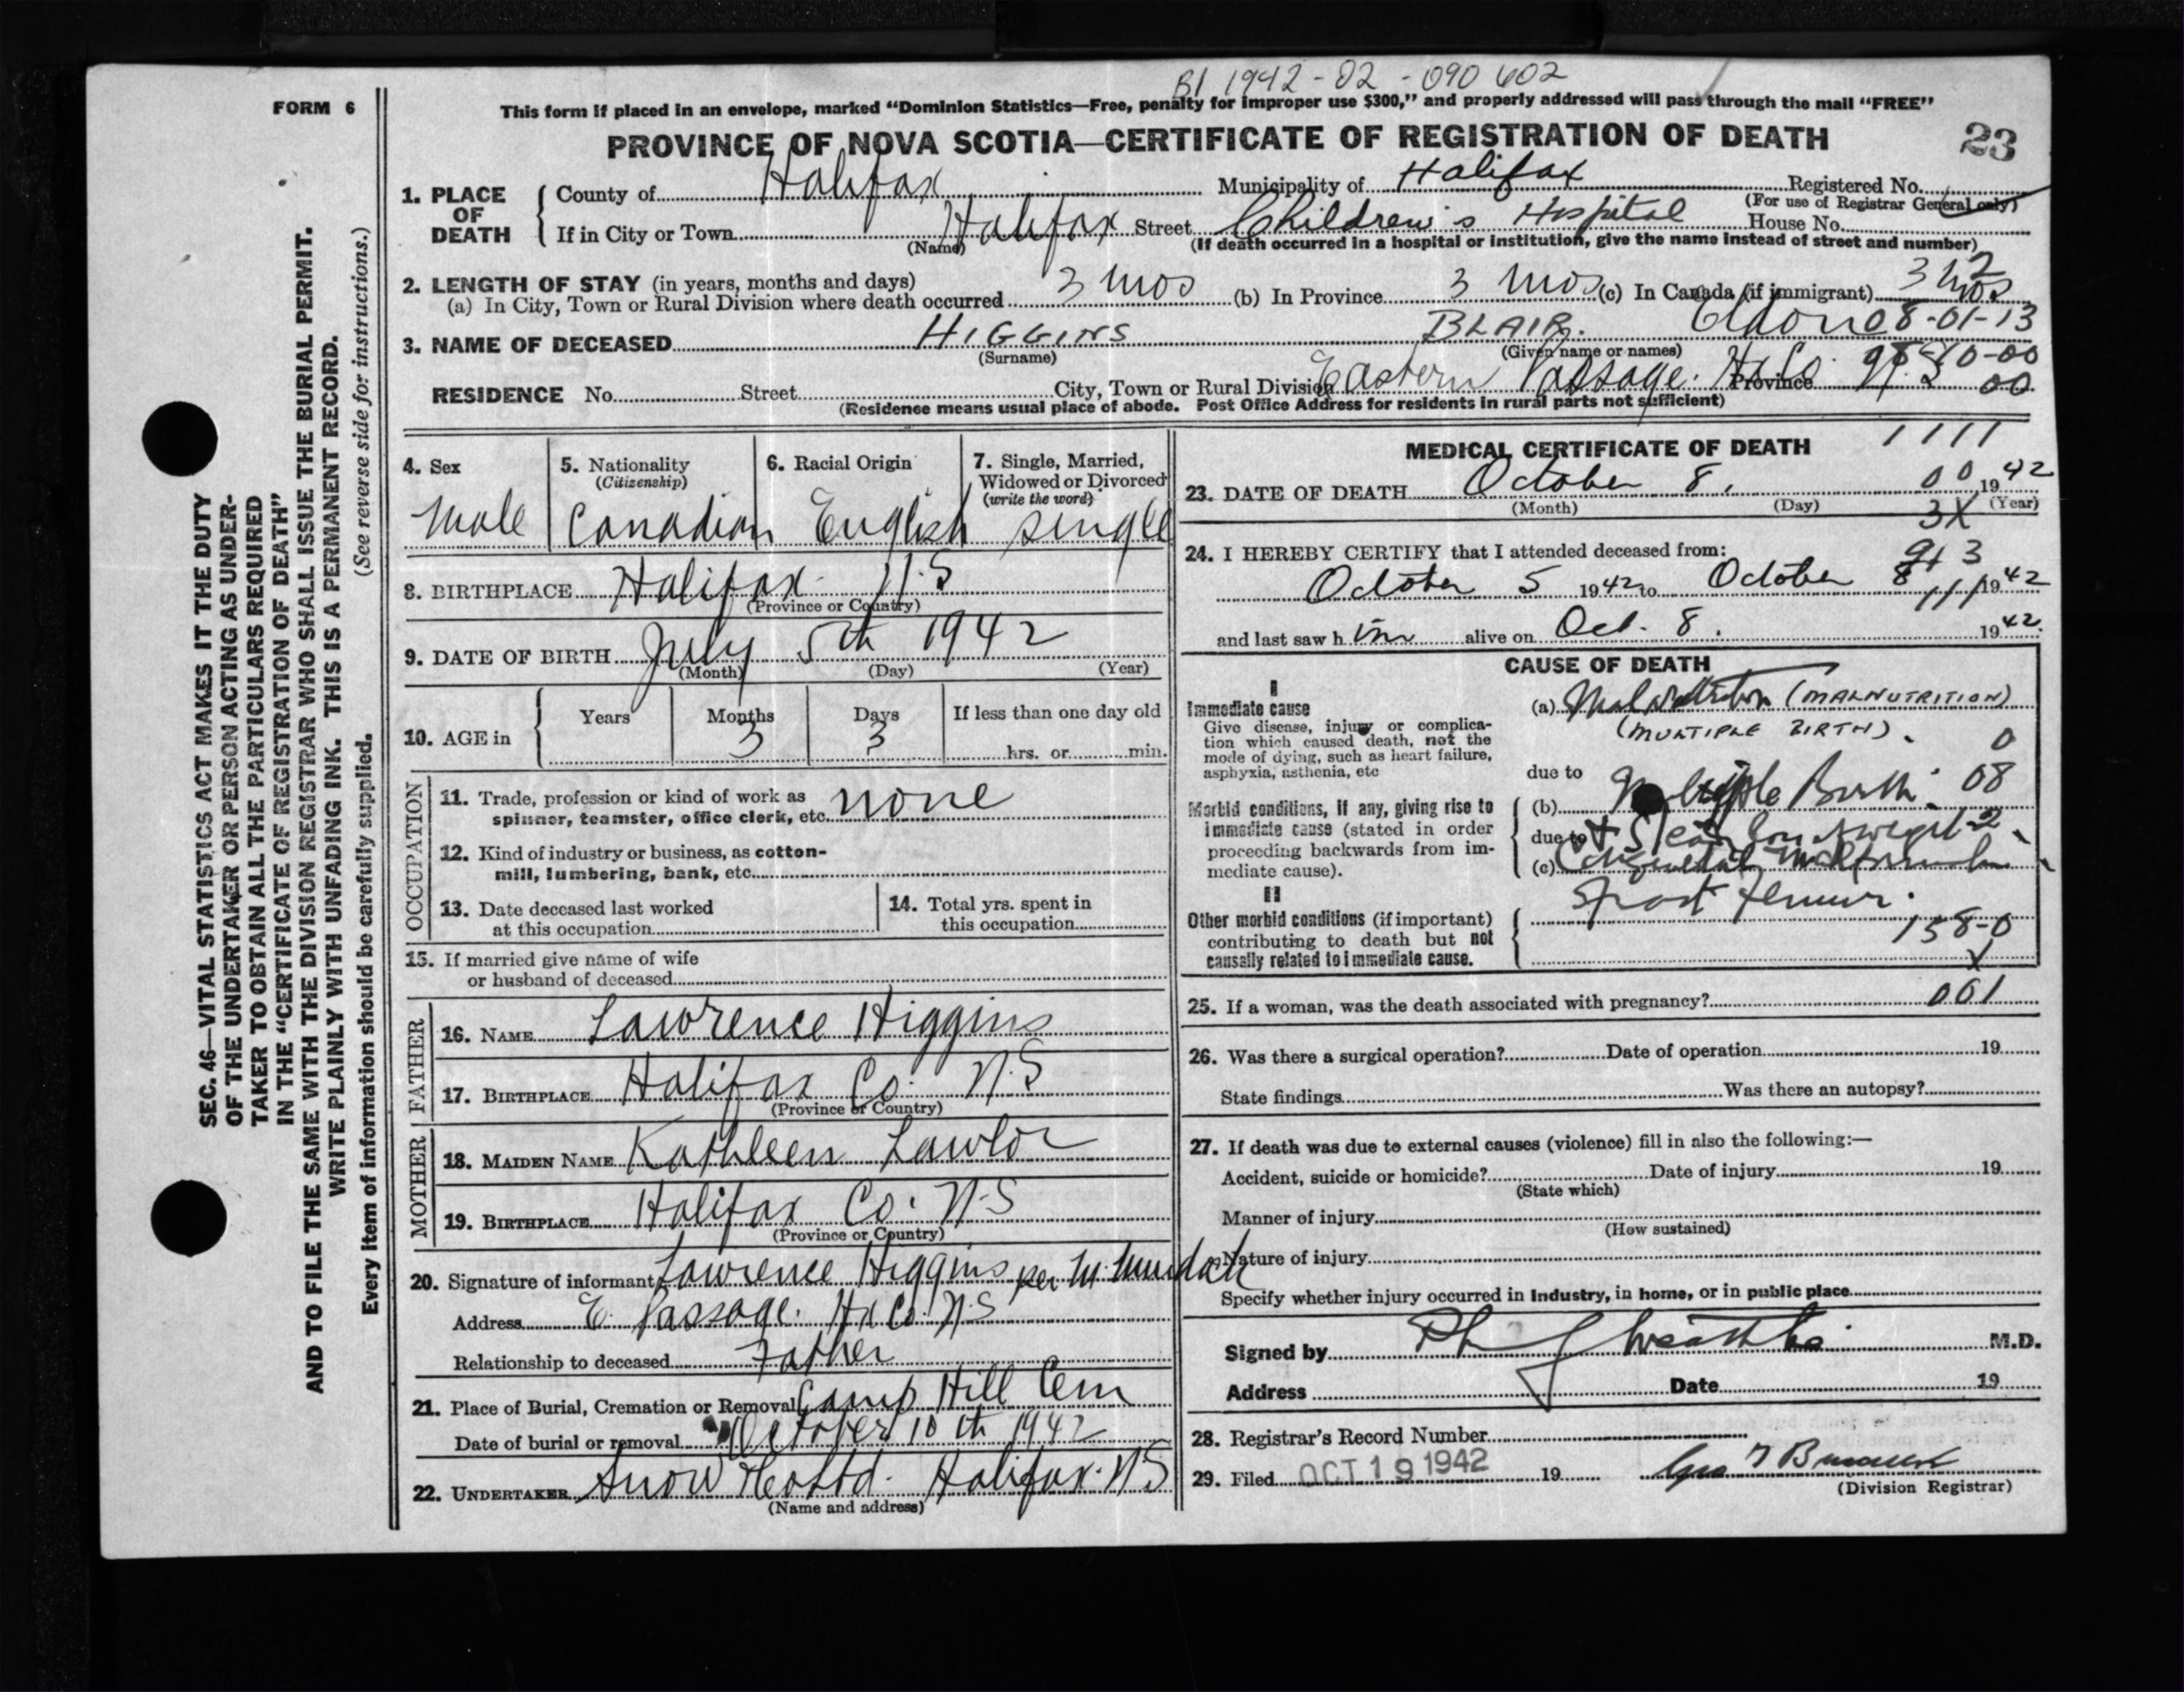 B1 1942-02-090602
FORM 6
This form if placed in an envelope, marked "Dominion Statistics—Free, penalty for improper use $300," and properly addressed will pass through the mail "FREE"
PROVINCE OF NOVA SCOTIA—CERTIFICATE OF REGISTRATION OF DEATH
23
SEC. 46—VITAL STATISTICS ACT MAKES IT THE DUTY
OF THE UNDERTAKER OR PERSON ACTING AS UNDER-
TAKER TO OBTAIN ALL THE PARTICULARS REQUIRED
IN THE "CERTIFICATE OF REGISTRATION OF DEATH"
AND TO FILE THE SAME WITH THE DIVISION REGISTRAR WHO SHALL ISSUE THE BURIAL PERMIT.
WRITE PLAINLY WITH UNFADING INK. THIS IS A PERMANENT RECORD.
Every item of information should be carefully supplied. (See reverse side for instructions.)
1. PLACE OF DEATH
County of Halifax Municipality of Halifax Registered No.
(For use of Registrar General only)
If in City or Town Halifax Street Children's Hospital House No.
(Name) (If death occurred in a hospital or institution, give the name instead of street and number)
2. LENGTH OF STAY (in years, months and days)
(a) In City, Town or Rural Division where death occurred 3 mos (b) In Province 3 mos (c) In Canada (if immigrant) 3 mos 2
3. NAME OF DECEASED HIGGINS BLAIR. Eldon 08-01-13
(Surname) (Given name or names)
RESIDENCE No. Street City, Town or Rural Division Eastern Passage. Hx Co. Province N.S 10-00
00
(Residence means usual place of abode. Post Office Address for residents in rural parts not sufficient)
4. Sex
Male
5. Nationality
(Citizenship)
Canadian
6. Racial Origin
English
7. Single, Married,
Widowed or Divorced
(write the word)
single
8. BIRTHPLACE Halifax N.S
(Province or Country)
9. DATE OF BIRTH July 5th 1942
(Month) (Day) (Year)
10. AGE in
Years Months Days If less than one day old
3 3 hrs. or min.
OCCUPATION
11. Trade, profession or kind of work as
spinner, teamster, office clerk, etc. none
12. Kind of industry or business, as cotton-
mill, lumbering, bank, etc.
13. Date deceased last worked
at this occupation
14. Total yrs. spent in
this occupation
15. If married give name of wife
or husband of deceased
FATHER
16. NAME Lawrence Higgins
17. BIRTHPLACE Halifax Co. N.S
(Province or Country)
MOTHER
18. MAIDEN NAME Kathleen Lawlor
19. BIRTHPLACE Halifax Co. N.S
(Province or Country)
20. Signature of informant Lawrence Higgins per M Murdoch
Address E. Passage. Hx Co. N.S
Relationship to deceased Father
21. Place of Burial, Cremation or Removal Camp Hill Cem
Date of burial or removal October 10th 1942
22. UNDERTAKER Snow & Co Ltd. Halifax. N.S
(Name and address)
MEDICAL CERTIFICATE OF DEATH 1111
23. DATE OF DEATH October 8. 00 1942
(Month) (Day) (Year)
3X
24. I HEREBY CERTIFY that I attended deceased from:
October 5 1942 to October 8 1942
111
and last saw him alive on Oct. 8. 1942.
CAUSE OF DEATH
I
Immediate cause
Give disease, injury or complica-
tion which caused death, not the
mode of dying, such as heart failure,
asphyxia, asthenia, etc
(a) Malnutrition (MALNUTRITION)
(MULTIPLE BIRTH). 0
due to
Morbid conditions, if any, giving rise to
immediate cause (stated in order
proceeding backwards from im-
mediate cause).
(b) Multiple Birth. 08
due to
(c) Congenital
II
Other morbid conditions (if important)
contributing to death but not
causally related to immediate cause.
femur.
158-0
X
25. If a woman, was the death associated with pregnancy? 001
26. Was there a surgical operation? Date of operation 19
State findings Was there an autopsy?
27. If death was due to external causes (violence) fill in also the following:—
Accident, suicide or homicide? Date of injury 19
(State which)
Manner of injury
(How sustained)
Nature of injury
Specify whether injury occurred in industry, in home, or in public place
Signed by M.D.
Address Date 19
28. Registrar's Record Number
29. Filed OCT 19 1942 19
(Division Registrar)